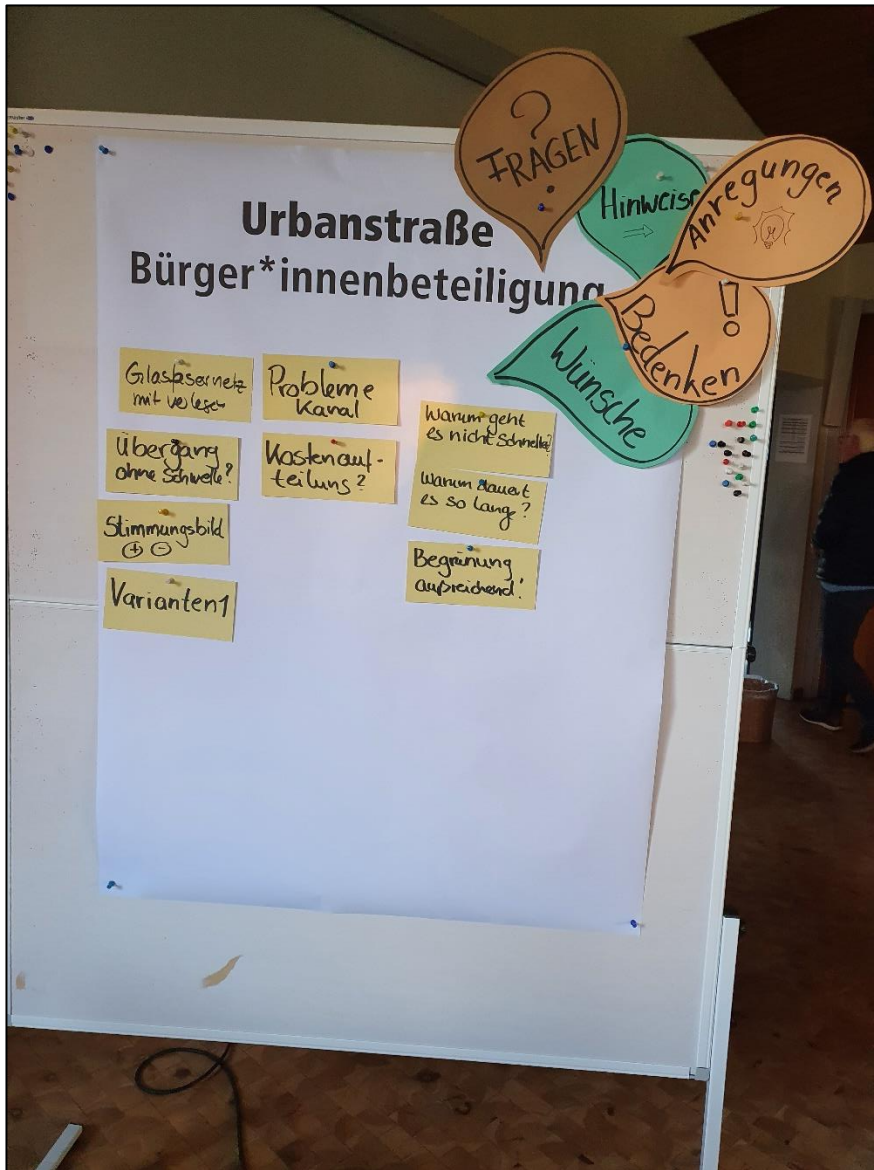 Urbanstraße
Bürger*innenbeteiligung
?
FRAGEN
Hinweise
Anregungen
!
Bedenken
Wünsche
Glasfasernetz
mit verlegen
Übergang
ohne Schwelle?
Stimmungsbild
+ -
Varianten1
Probleme
Kanal
Kostenauf-
teilung?
Warum geht
es nicht schneller?
Warum dauert
es so lang?
Begrünung
ausreichend!